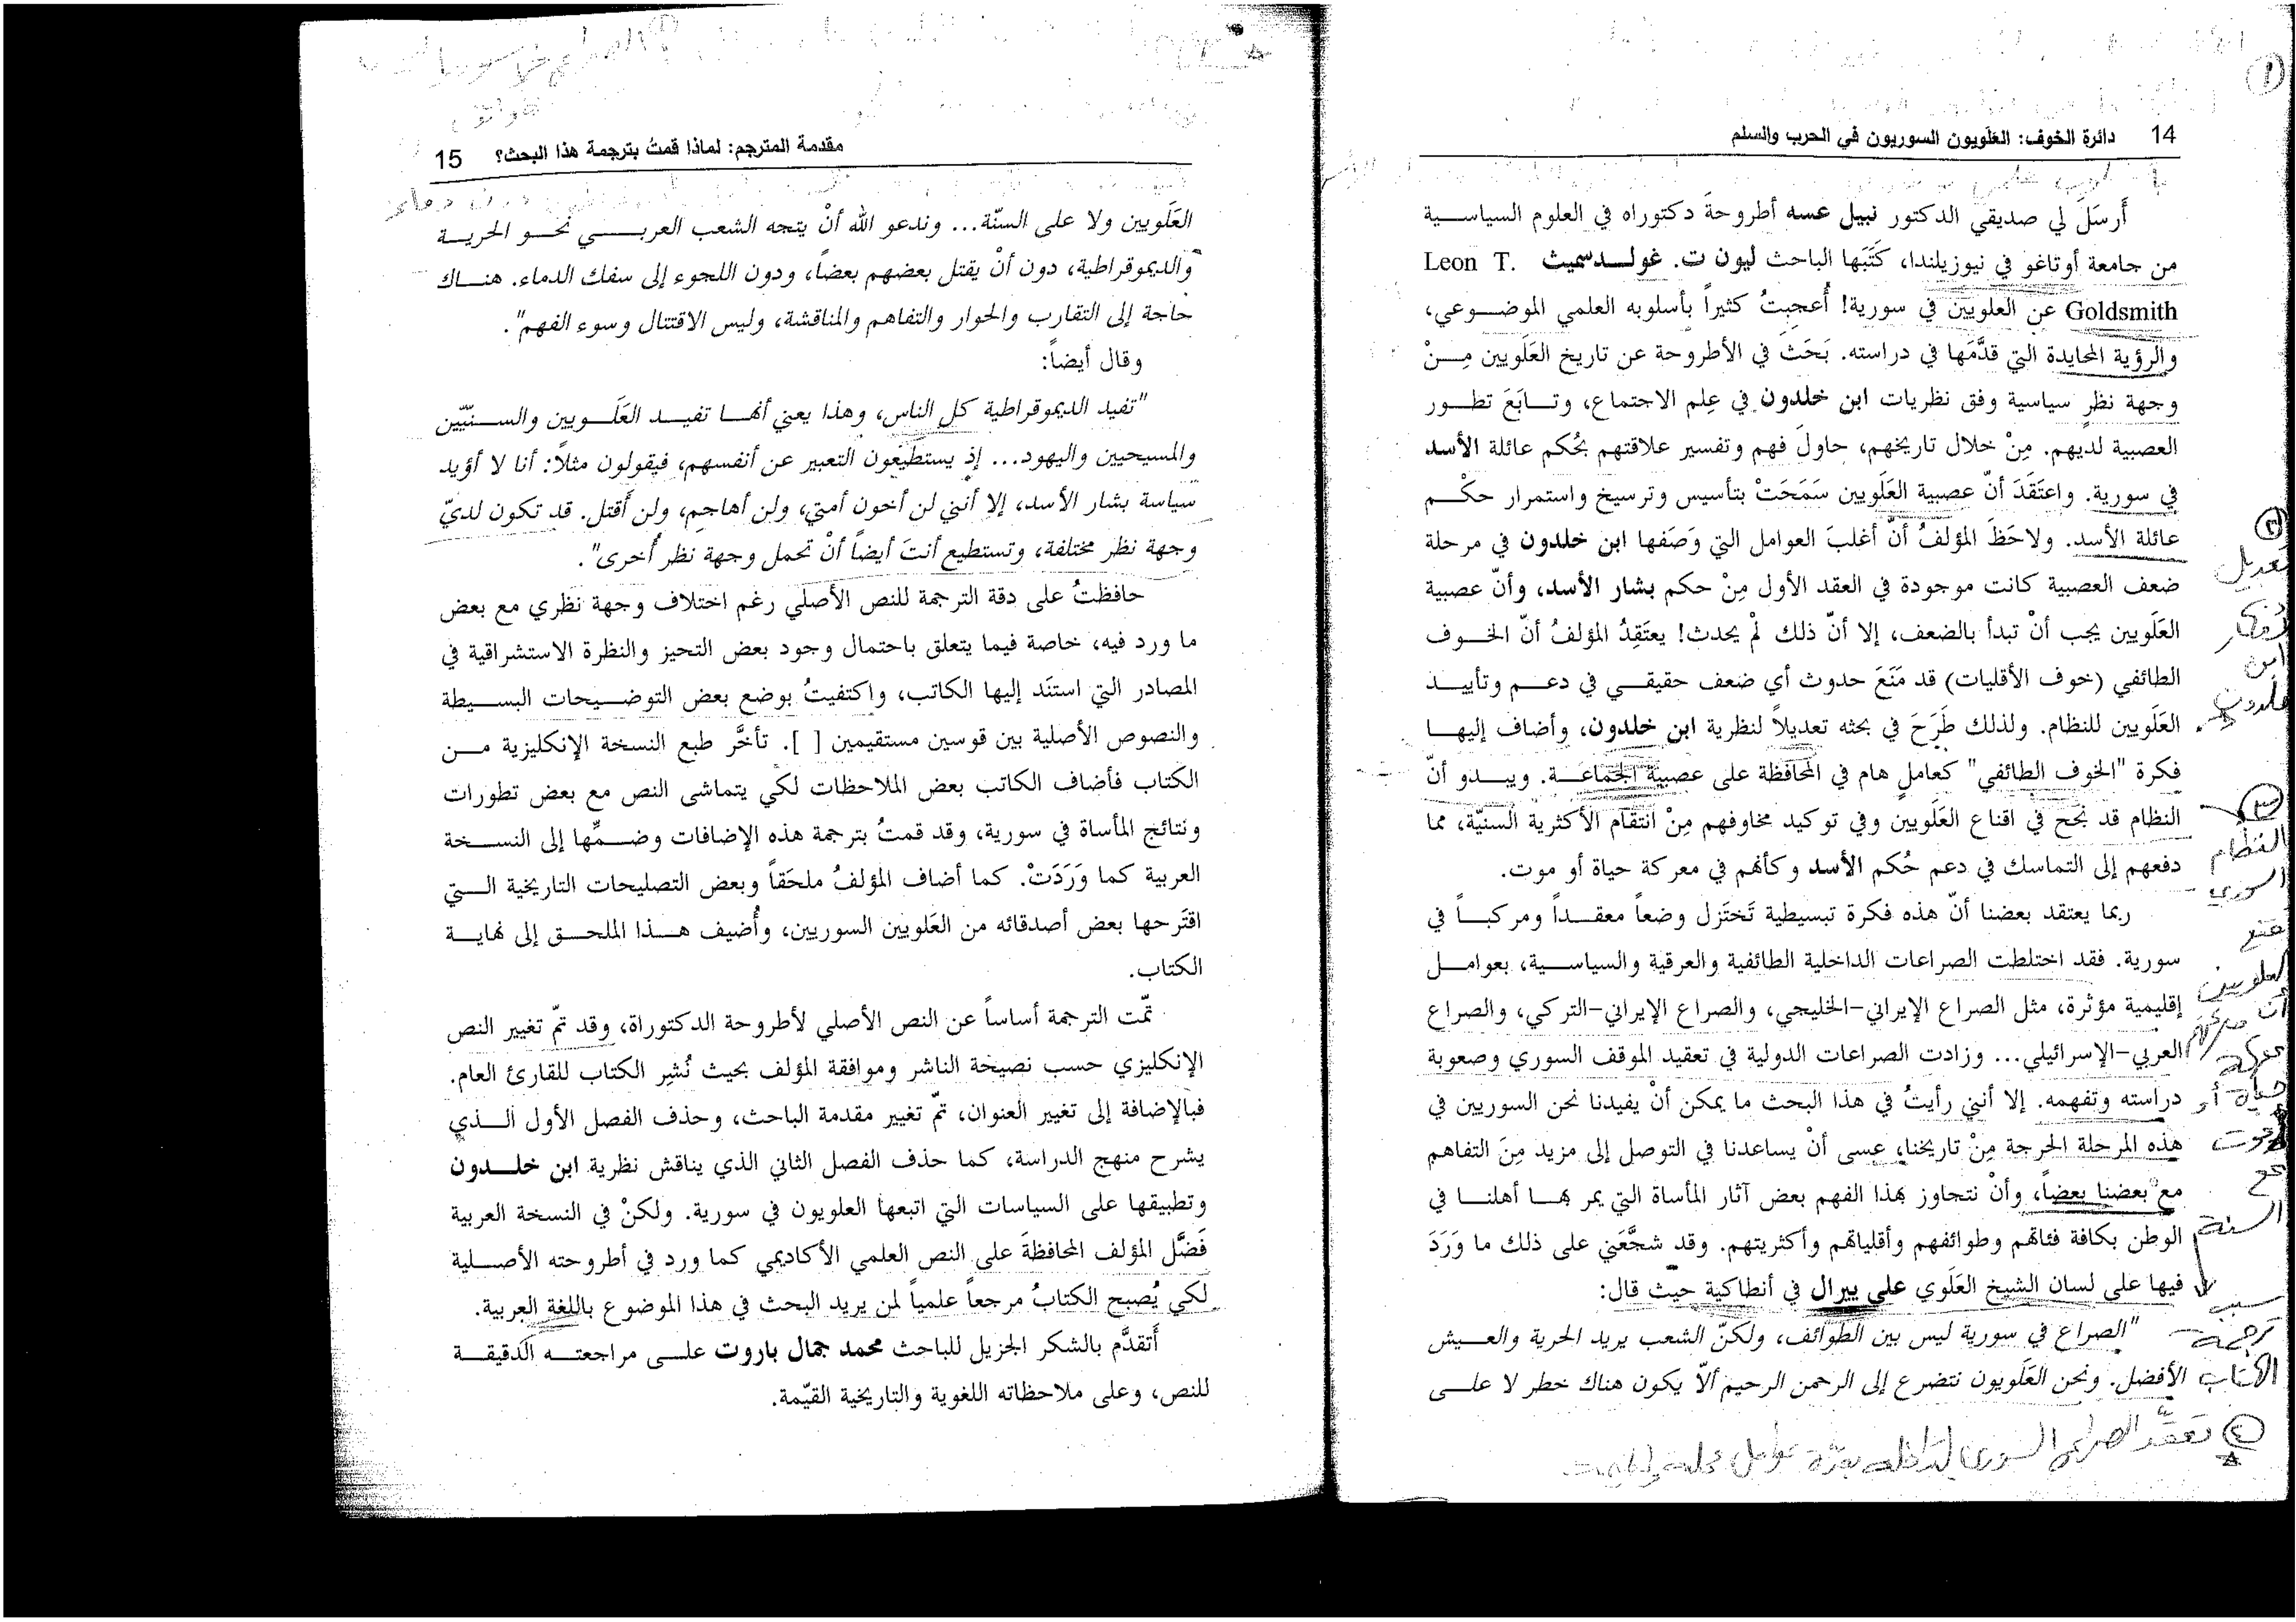 14 دائرة الخوف: العَلَويون السوريون في الحرب والسلم
أَرسَلَ لي صديقي الدكتور نبيل عسه أطروحةَ دكتوراه في العلوم السياسية
من جامعة أوتاغو في نيوزيلندا، كَتَبَها الباحث ليون ت. غولدسميث Leon T.
Goldsmith عن العلويين في سورية! أُعجِبتُ كثيراً بأسلوبه العلمي الموضوعي،
والرؤية المحايدة التي قدَّمَها في دراسته. بَحَثَ في الأطروحة عن تاريخ العَلَويين مِنْ
وجهة نظرٍ سياسية وفق نظريات ابن خلدون في عِلم الاجتماع، وتابَعَ تطور
العصبية لديهم. مِنْ خلال تاريخهم، حاولَ فهم وتفسير علاقتهم بحُكم عائلة الأسد
في سورية. واعتَقَدَ أنّ عصبية العَلَويين سَمَحَتْ بتأسيس وترسيخ واستمرار حكْم
عائلة الأسد. ولاحَظَ المؤلفُ أنّ أغلبَ العوامل التي وَصَفها ابن خلدون في مرحلة
ضعف العصبية كانت موجودة في العقد الأول مِنْ حكم بشار الأسد، وأنّ عصبية
العَلَويين يجب أنْ تبدأ بالضعف، إلا أنّ ذلك لمْ يحدث! يعتَقِدُ المؤلفُ أنّ الخوف
الطائفي (خوف الأقليات) قد مَنَعَ حدوث أي ضعف حقيقي في دعم وتأييد
العَلَويين للنظام. ولذلك طَرَحَ في بحثه تعديلاً لنظرية ابن خلدون، وأضاف إليها
فكرة "الخوف الطائفي" كعاملٍ هام في المحافظة على عصبية الجماعة. ويبدو أنّ
النظام قد نجح في اقناع العَلَويين وفي توكيد مخاوفهم مِنْ انتقام الأكثرية السنيّة، مما
دفعهم إلى التماسك في دعم حُكم الأسد وكأنهم في معركة حياة أو موت.
ربما يعتقد بعضنا أنّ هذه فكرة تبسيطية تَختَزل وضعاً معقداً ومركباً في
سورية. فقد اختلطت الصراعات الداخلية الطائفية والعرقية والسياسية، بعوامل
إقليمية مؤثرة، مثل الصراع الإيراني-الخليجي، والصراع الإيراني-التركي، والصراع
العربي-الإسرائيلي... وزادت الصراعات الدولية في تعقيد الموقف السوري وصعوبة
دراسته وتفهمه. إلا أنني رأيتُ في هذا البحث ما يمكن أنْ يفيدنا نحن السوريين في
هذه المرحلة الحرجة مِنْ تاريخنا، عسى أنْ يساعدنا في التوصل إلى مزيد مِنَ التفاهم
مع بعضنا بعضاً، وأنْ نتجاوز بهذا الفهم بعض آثار المأساة التي يمر بها أهلنا في
الوطن بكافة فئاتهم وطوائفهم وأقلياتهم وأكثريتهم. وقد شجَّعَني على ذلك ما وَرَدَ
فيها على لسان الشيخ العَلَوي علي ييرال في أنطاكية حيث قال:
"الصراع في سورية ليس بين الطوائف، ولكنّ الشعب يريد الحرية والعيش
الأفضل. ونحن العَلَويون نتضرع إلى الرحمن الرحيم ألاّ يكون هناك خطر لا على
تعديل
ابن
خلدون
النظام
السوري
العلويين
معركة
حياة أو
موت
مع
السنة
سبب
ترجمة
الكتاب
مقدمة المترجم: لماذا قمتُ بترجمة هذا البحث؟ 15
العَلَويين ولا على السنّة... وندعو الله أنْ يتجه الشعب العربي نحو الحرية
والديموقراطية، دون أنْ يقتل بعضهم بعضاً، ودون اللجوء إلى سفك الدماء. هناك
حاجة إلى التقارب والحوار والتفاهم والمناقشة، وليس الاقتتال وسوء الفهم".
وقال أيضاً:
"تفيد الديموقراطية كل الناس، وهذا يعني أنها تفيد العَلَويين والسنّيّين
والمسيحيين واليهود... إذ يستطيعون التعبير عن أنفسهم، فيقولون مثلاً: أنا لا أؤيد
سياسة بشار الأسد، إلا أنني لن أخون أمتي، ولن أهاجم، ولن أَقتل. قد تكون لديّ
وجهة نظر مختلفة، وتستطيع أنتَ أيضاً أنْ تحمل وجهة نظر أُخرى".
حافظتُ على دقة الترجمة للنص الأصلي رغم اختلاف وجهة نظري مع بعض
ما ورد فيه، خاصة فيما يتعلق باحتمال وجود بعض التحيز والنظرة الاستشراقية في
المصادر التي استنَد إليها الكاتب، واكتفيتُ بوضع بعض التوضيحات البسيطة
والنصوص الأصلية بين قوسين مستقيمين [ ]. تأخَّر طبع النسخة الإنكليزية من
الكتاب فأضاف الكاتب بعض الملاحظات لكي يتماشى النص مع بعض تطورات
ونتائج المأساة في سورية، وقد قمتُ بترجمة هذه الإضافات وضمِّها إلى النسخة
العربية كما وَرَدَتْ. كما أضاف المؤلفُ ملحَقاً وبعض التصليحات التاريخية التي
اقتَرحها بعض أصدقائه من العَلَويين السوريين، وأُضيف هذا الملحق إلى نهاية
الكتاب.
تمّت الترجمة أساساً عن النص الأصلي لأطروحة الدكتوراة، وقد تمّ تغيير النص
الإنكليزي حسب نصيحة الناشر وموافقة المؤلف بحيث نُشِر الكتاب للقارئ العام.
فبالإضافة إلى تغيير العنوان، تمّ تغيير مقدمة الباحث، وحذف الفصل الأول الذي
يشرح منهج الدراسة، كما حذف الفصل الثاني الذي يناقش نظرية ابن خلدون
وتطبيقها على السياسات التي اتبعها العلويون في سورية. ولكنْ في النسخة العربية
فَضَّل المؤلف المحافظةَ على النص العلمي الأكاديمي كما ورد في أطروحته الأصلية
لكي يُصبح الكتابُ مرجعاً علمياً لمن يريد البحث في هذا الموضوع باللغة العربية.
أَتقدَّم بالشكر الجزيل للباحث محمد جمال باروت على مراجعته الدقيقة
للنص، وعلى ملاحظاته اللغوية والتاريخية القيّمة.